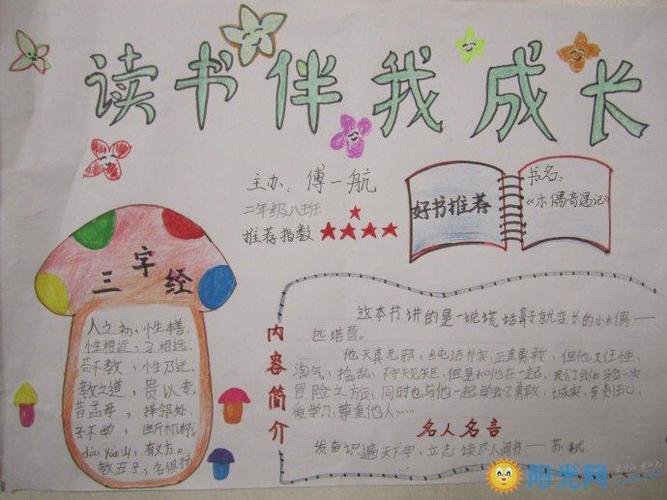 读书伴我成长
主办：傅一航
二年级八班
推荐指数
好书推荐
书名：
《木偶奇遇记》
三字经
人之初，性本善。
性相近，习相远。
苟不教，性乃迁。
教之道，贵以专。
昔孟母，择邻处。
子不学，断机杼。
dòu yān shān，有义方。
教五子，名俱扬
内容简介
这本书讲的是一说谎话鼻子就变长的小木偶——
匹诺
他天真无邪，
正直勇敢，但他又任性、
淘气、捣乱、
但是和他在一起，我们会体验一次
冒险之旅，同时也与他一起学会了勇敢、诚实、有责任心、
爱学习，尊重他人……
名人名言
发奋识遍天下字，立志读尽人间书——苏轼
阳光网